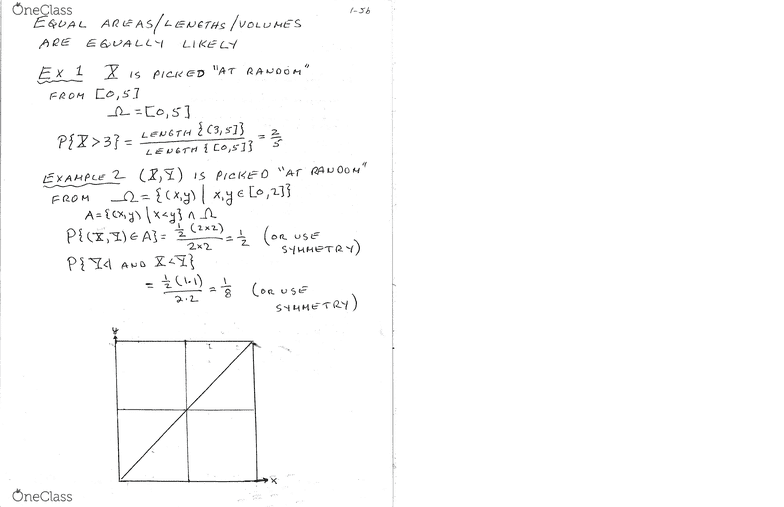 OneClass
1-5b
EQUAL AREAS/LENGTHS/VOLUMES
ARE EQUALLY LIKELY
EX 1 X IS PICKED "AT RANDOM"
FROM [0,5]
Ω = [0,5]
P{X>3} = LENGTH {(3,5]} / LENGTH {[0,5]} = 2/5
EXAMPLE 2 (X,Y) IS PICKED "AT RANDOM"
FROM Ω = {(x,y) | x,y ∈ [0,2]}
A = {(x,y) | x<y} ∩ Ω
P{(X,Y) ∈ A} = ½(2x2) / 2x2 = ½ (OR USE
SYMMETRY)
P{Y<1 AND X<Y}
= ½(1·1) / 2·2 = 1/8 (OR USE
SYMMETRY)
y
x
OneClass